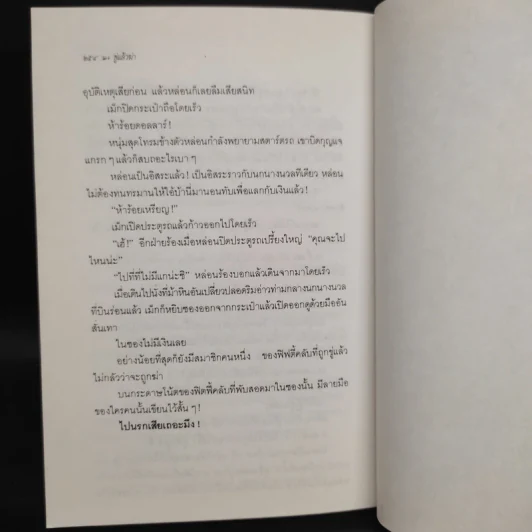 ๒๕๔ ๒๐ ขู่แล้วฆ่า
อุบัติเหตุเสียก่อน แล้วหล่อนก็เลยลืมเสียสนิท
เม้กปิดกระเป๋าถือโดยเร็ว
ห้าร้อยดอลลาร์!
หนุ่มสุดโทรมข้างตัวหล่อนกำลังพยายามสตาร์ตรถ เขาบิดกุญแจ
แกรก ๆ แล้วก็สบถอะไรเบา ๆ
หล่อนเป็นอิสระแล้ว! เป็นอิสระราวกับนกนางนวลทีเดียว หล่อน
ไม่ต้องทนทรมานให้ไอ้บ้านี่มานอนทับเพื่อแลกกับเงินแล้ว!
“ห้าร้อยเหรียญ!”
เม้กเปิดประตูรถแล้วก้าวออกไปโดยเร็ว
“เฮ้!” อีกฝ่ายร้องเมื่อหล่อนปิดประตูรถเปรี้ยงใหญ่ “คุณจะไป
ไหนน่ะ”
“ไปที่ที่ไม่มีแกน่ะซิ” หล่อนร้องบอกแล้วเดินจากมาโดยเร็ว
เมื่อเดินไปนั่งที่ม้าหินอันเปลี่ยวปลอดริมอ่าวท่ามกลางนกนางนวล
ที่บินร่อนแล้ว เม้กก็หยิบซองออกจากกระเป๋าแล้วเปิดออกดูด้วยมืออัน
สั่นเทา
ในซองไม่มีเงินเลย
อย่างน้อยที่สุดก็ยังมีสมาชิกคนหนึ่ง ของฟิฟตี้คลับที่ถูกขู่แล้ว
ไม่กลัวว่าจะถูกฆ่า
บนกระดาษโน้ตของฟิตฟี้คลับที่พับสอดมาในซองนั้น มีลายมือ
ของใครคนนั้นเขียนไว้สั้น ๆ!
ไปนรกเสียเถอะมึง!